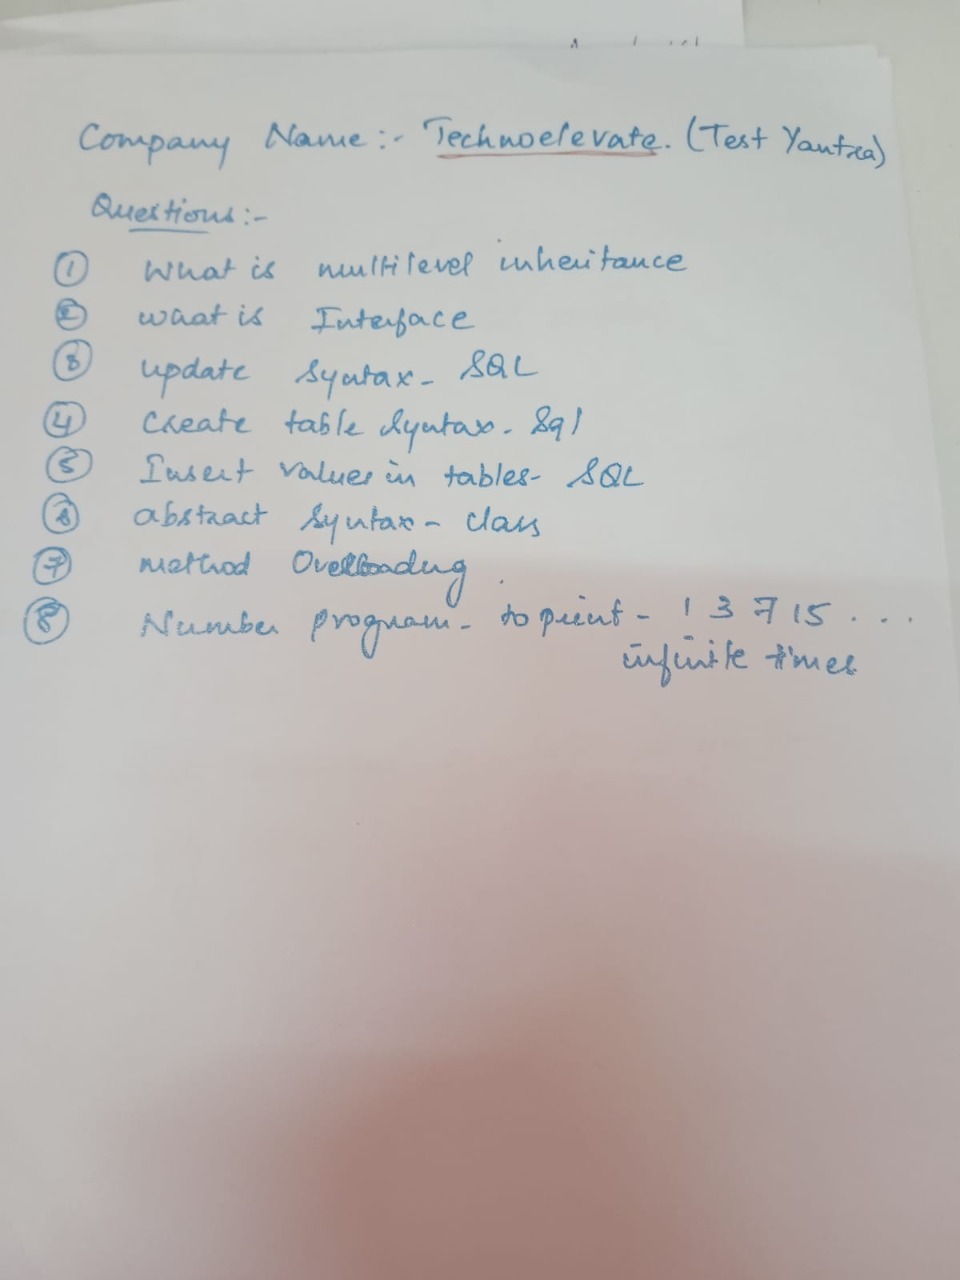 Company Name:- Technoelevate. (Test Yantra)
Questions:-
① What is multilevel inheritance
② what is Interface
③ update Syntax - SQL
④ Create table Syntax - Sql
⑤ Insert values in tables - SQL
⑥ abstract Syntax - class
⑦ method Overloading.
⑧ Number program - to print - 1 3 7 15 ...
infinite times